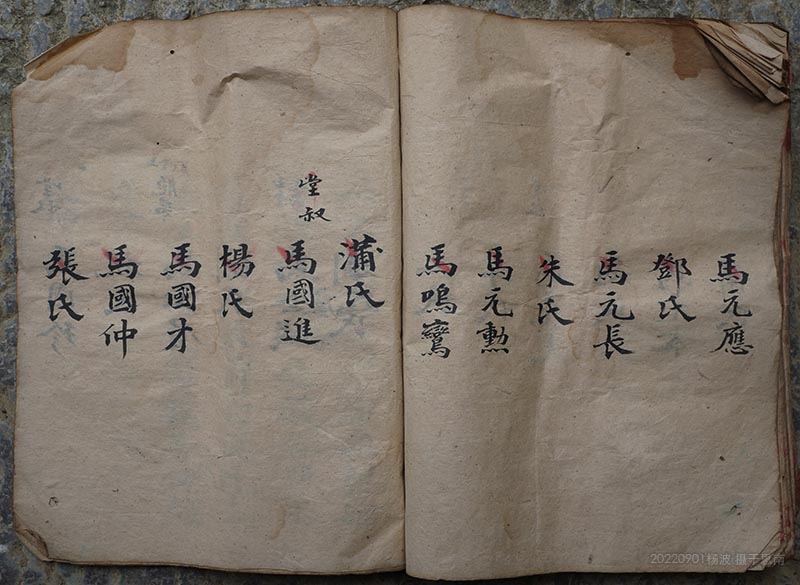 馬元應
鄧氏
馬元長
朱氏
馬元勲
馬鳴鸞
蒲氏
堂叔
馬國進
楊氏
馬國才
馬國仲
張氏
20220901杨波·摄于思南